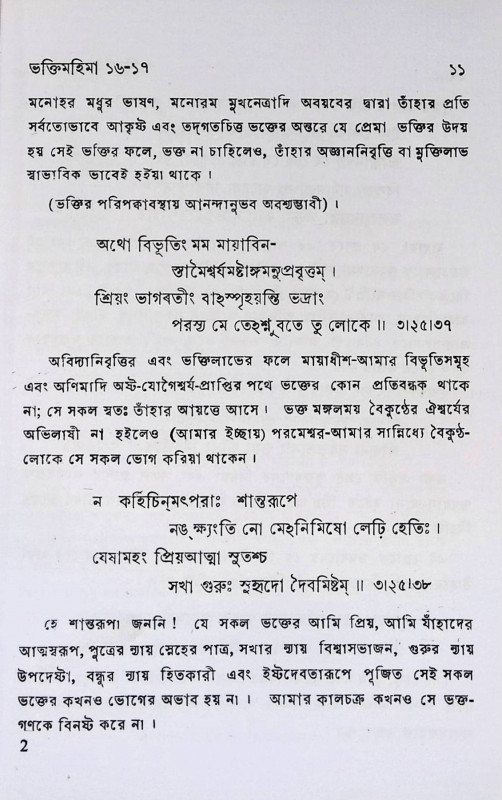 ভক্তিমহিমা ১৬-১৭ ১১
মনোহর মধুর ভাষণ, মনোরম মুখনেত্রাদি অবয়বের দ্বারা তাঁহার প্রতি
সর্বতোভাবে আকৃষ্ট এবং তদ্‌গতচিত্ত ভক্তের অন্তরে যে প্রেমা ভক্তির উদয়
হয় সেই ভক্তির ফলে, ভক্ত না চাহিলেও, তাঁহার অজ্ঞাননিবৃত্তি বা মুক্তিলাভ
স্বাভাবিক ভাবেই হইয়া থাকে ।
(ভক্তির পরিপক্কাবস্থায় আনন্দানুভব অবশ্যম্ভাবী) ।
অথো বিভূতিং মম মায়াবিন-
স্তামৈশ্বর্যমষ্টাঙ্গমনুপ্রবৃত্তম্ ।
শ্রিয়ং ভাগবতীং বাহস্পৃহয়ন্তি ভদ্রাং
পরস্য মে তেহশ্নুবতে তু লোকে ॥ ৩।২৫।৩৭
অবিদ্যানিবৃত্তির এবং ভক্তিলাভের ফলে মায়াধীশ-আমার বিভূতিসমূহ
এবং অণিমাদি অষ্ট-যোগৈশ্বর্য-প্রাপ্তির পথে ভক্তের কোন প্রতিবন্ধক থাকে
না; সে সকল স্বতঃ তাঁহার আয়ত্তে আসে । ভক্ত মঙ্গলময় বৈকুণ্ঠের ঐশ্বর্যের
অভিলাষী না হইলেও (আমার ইচ্ছায়) পরমেশ্বর-আমার সান্নিধ্যে বৈকুণ্ঠ-
লোকে সে সকল ভোগ করিয়া থাকেন ।
ন কর্হিচিন্‌মৎপরাঃ শান্তরূপে
নঙ্‌ক্ষ্যংতি নো মেহনিমিষো লেঢ়ি হেতিঃ ।
যেষামহং প্রিয়আত্মা সুতশ্চ
সখা গুরুঃ সুহৃদো দৈবমিষ্টম্ ॥ ৩।২৫।৩৮
হে শান্তরূপা জননি ! যে সকল ভক্তের আমি প্রিয়, আমি যাঁহাদের
আত্মস্বরূপ, পুত্রের ন্যায় স্নেহের পাত্র, সখার ন্যায় বিশ্বাসভাজন, গুরুর ন্যায়
উপদেষ্টা, বন্ধুর ন্যায় হিতকারী এবং ইষ্টদেবতারূপে পূজিত সেই সকল
ভক্তের কখনও ভোগের অভাব হয় না । আমার কালচক্র কখনও সে ভক্ত-
গণকে বিনষ্ট করে না ।
2